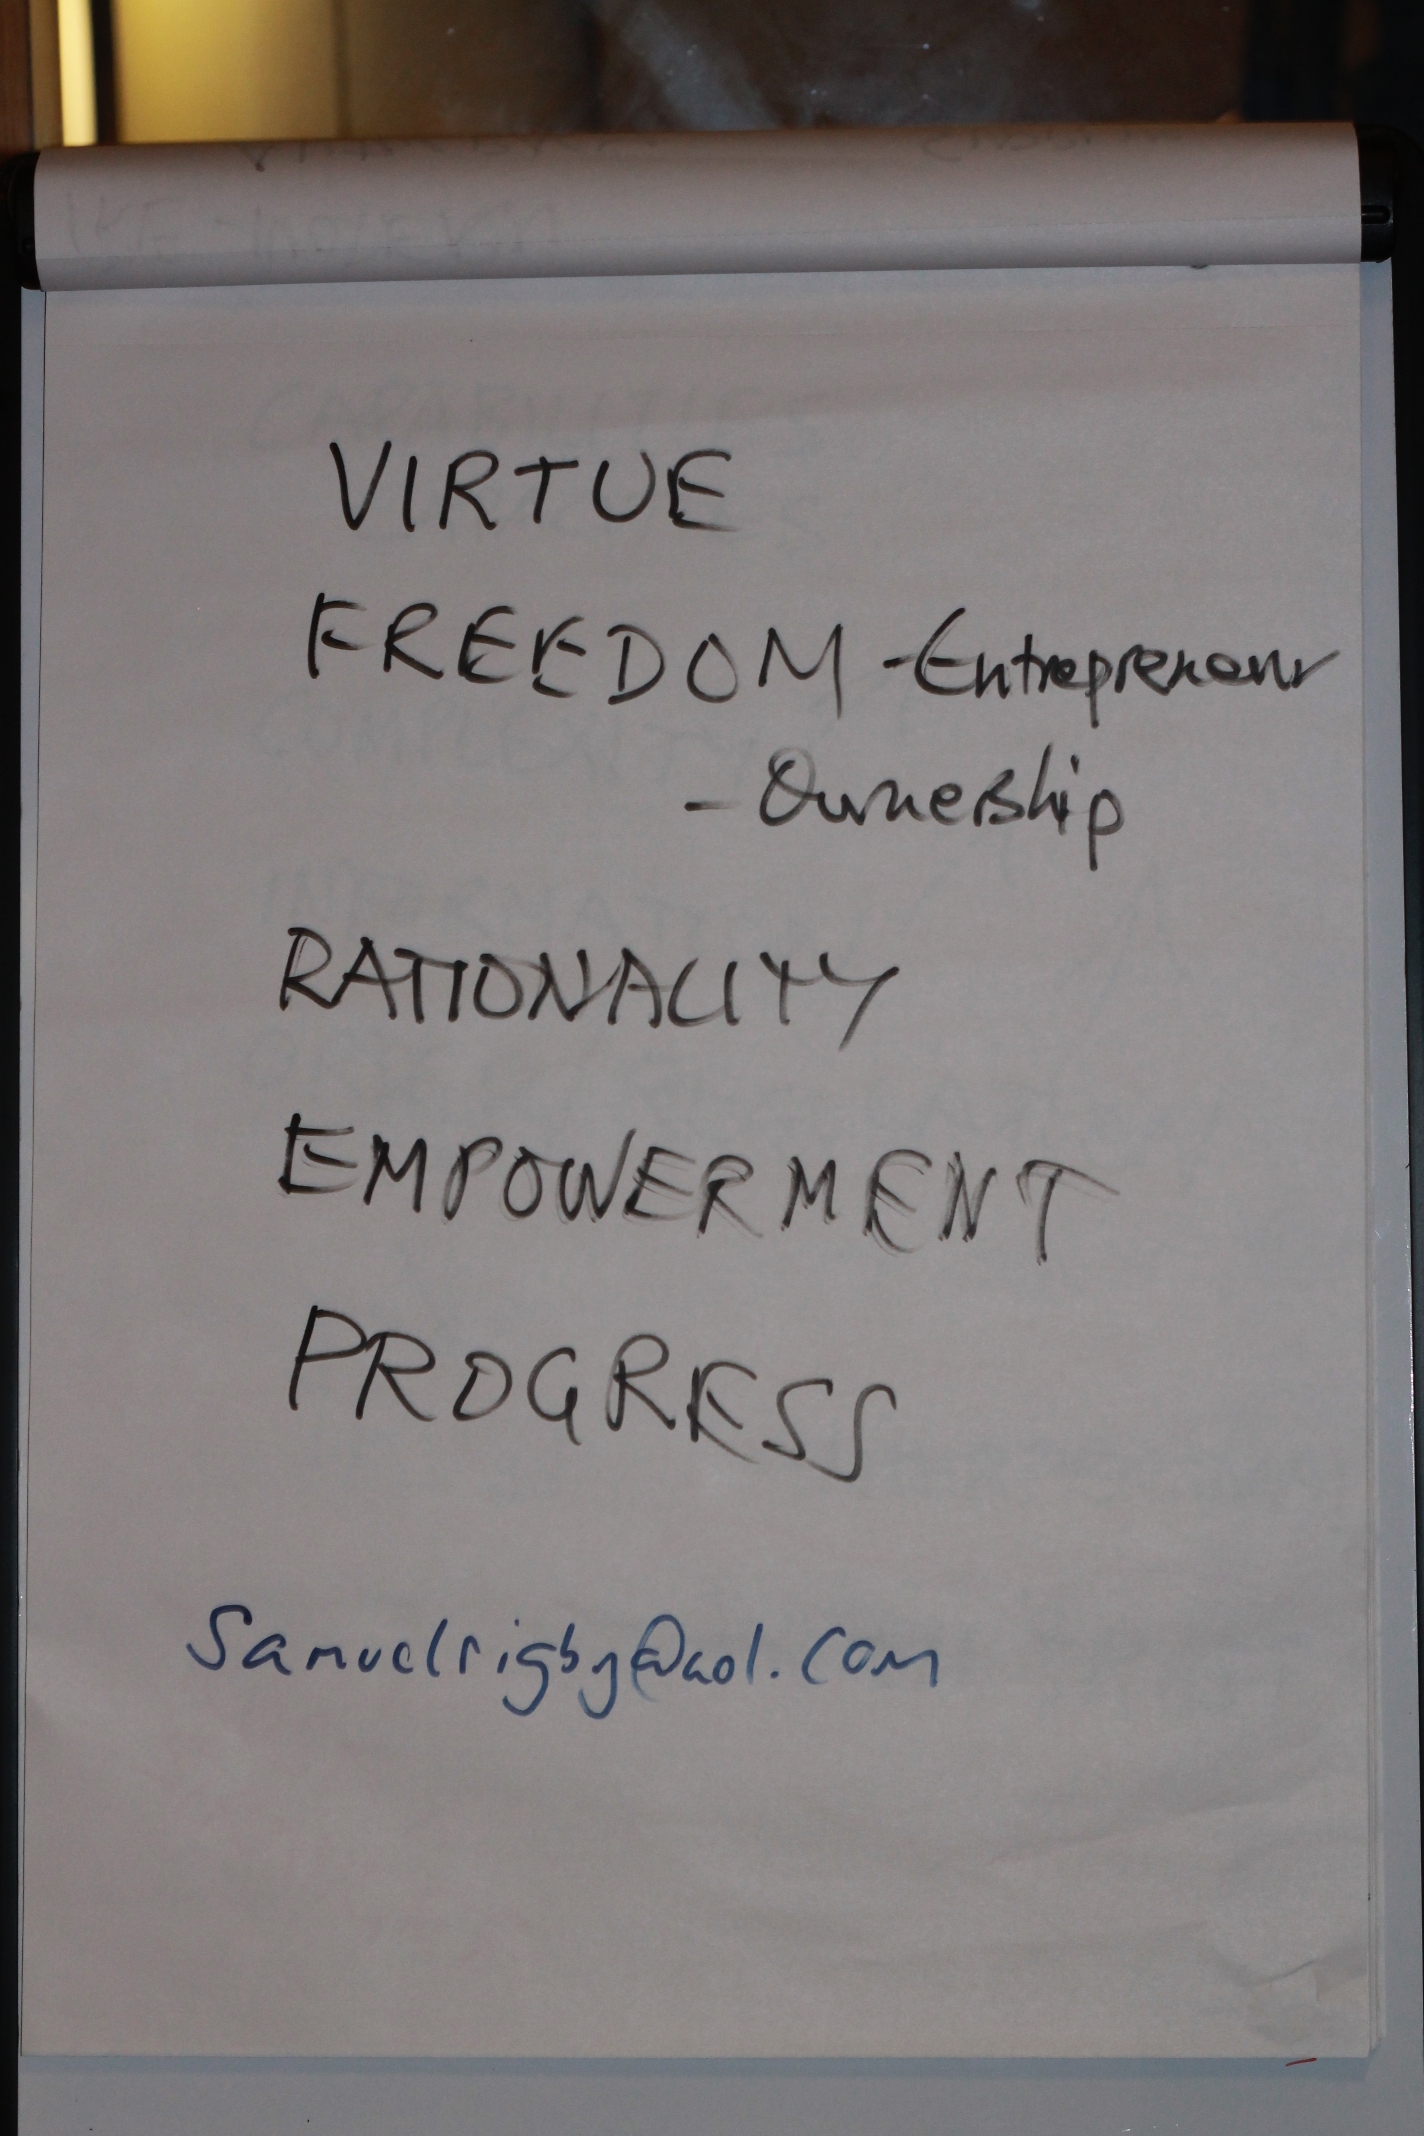 VIRTUE
FREEDOM - Entrepreneur
- Ownership
RATIONALITY
EMPOWERMENT
PROGRESS
Samuelrigby@aol.com